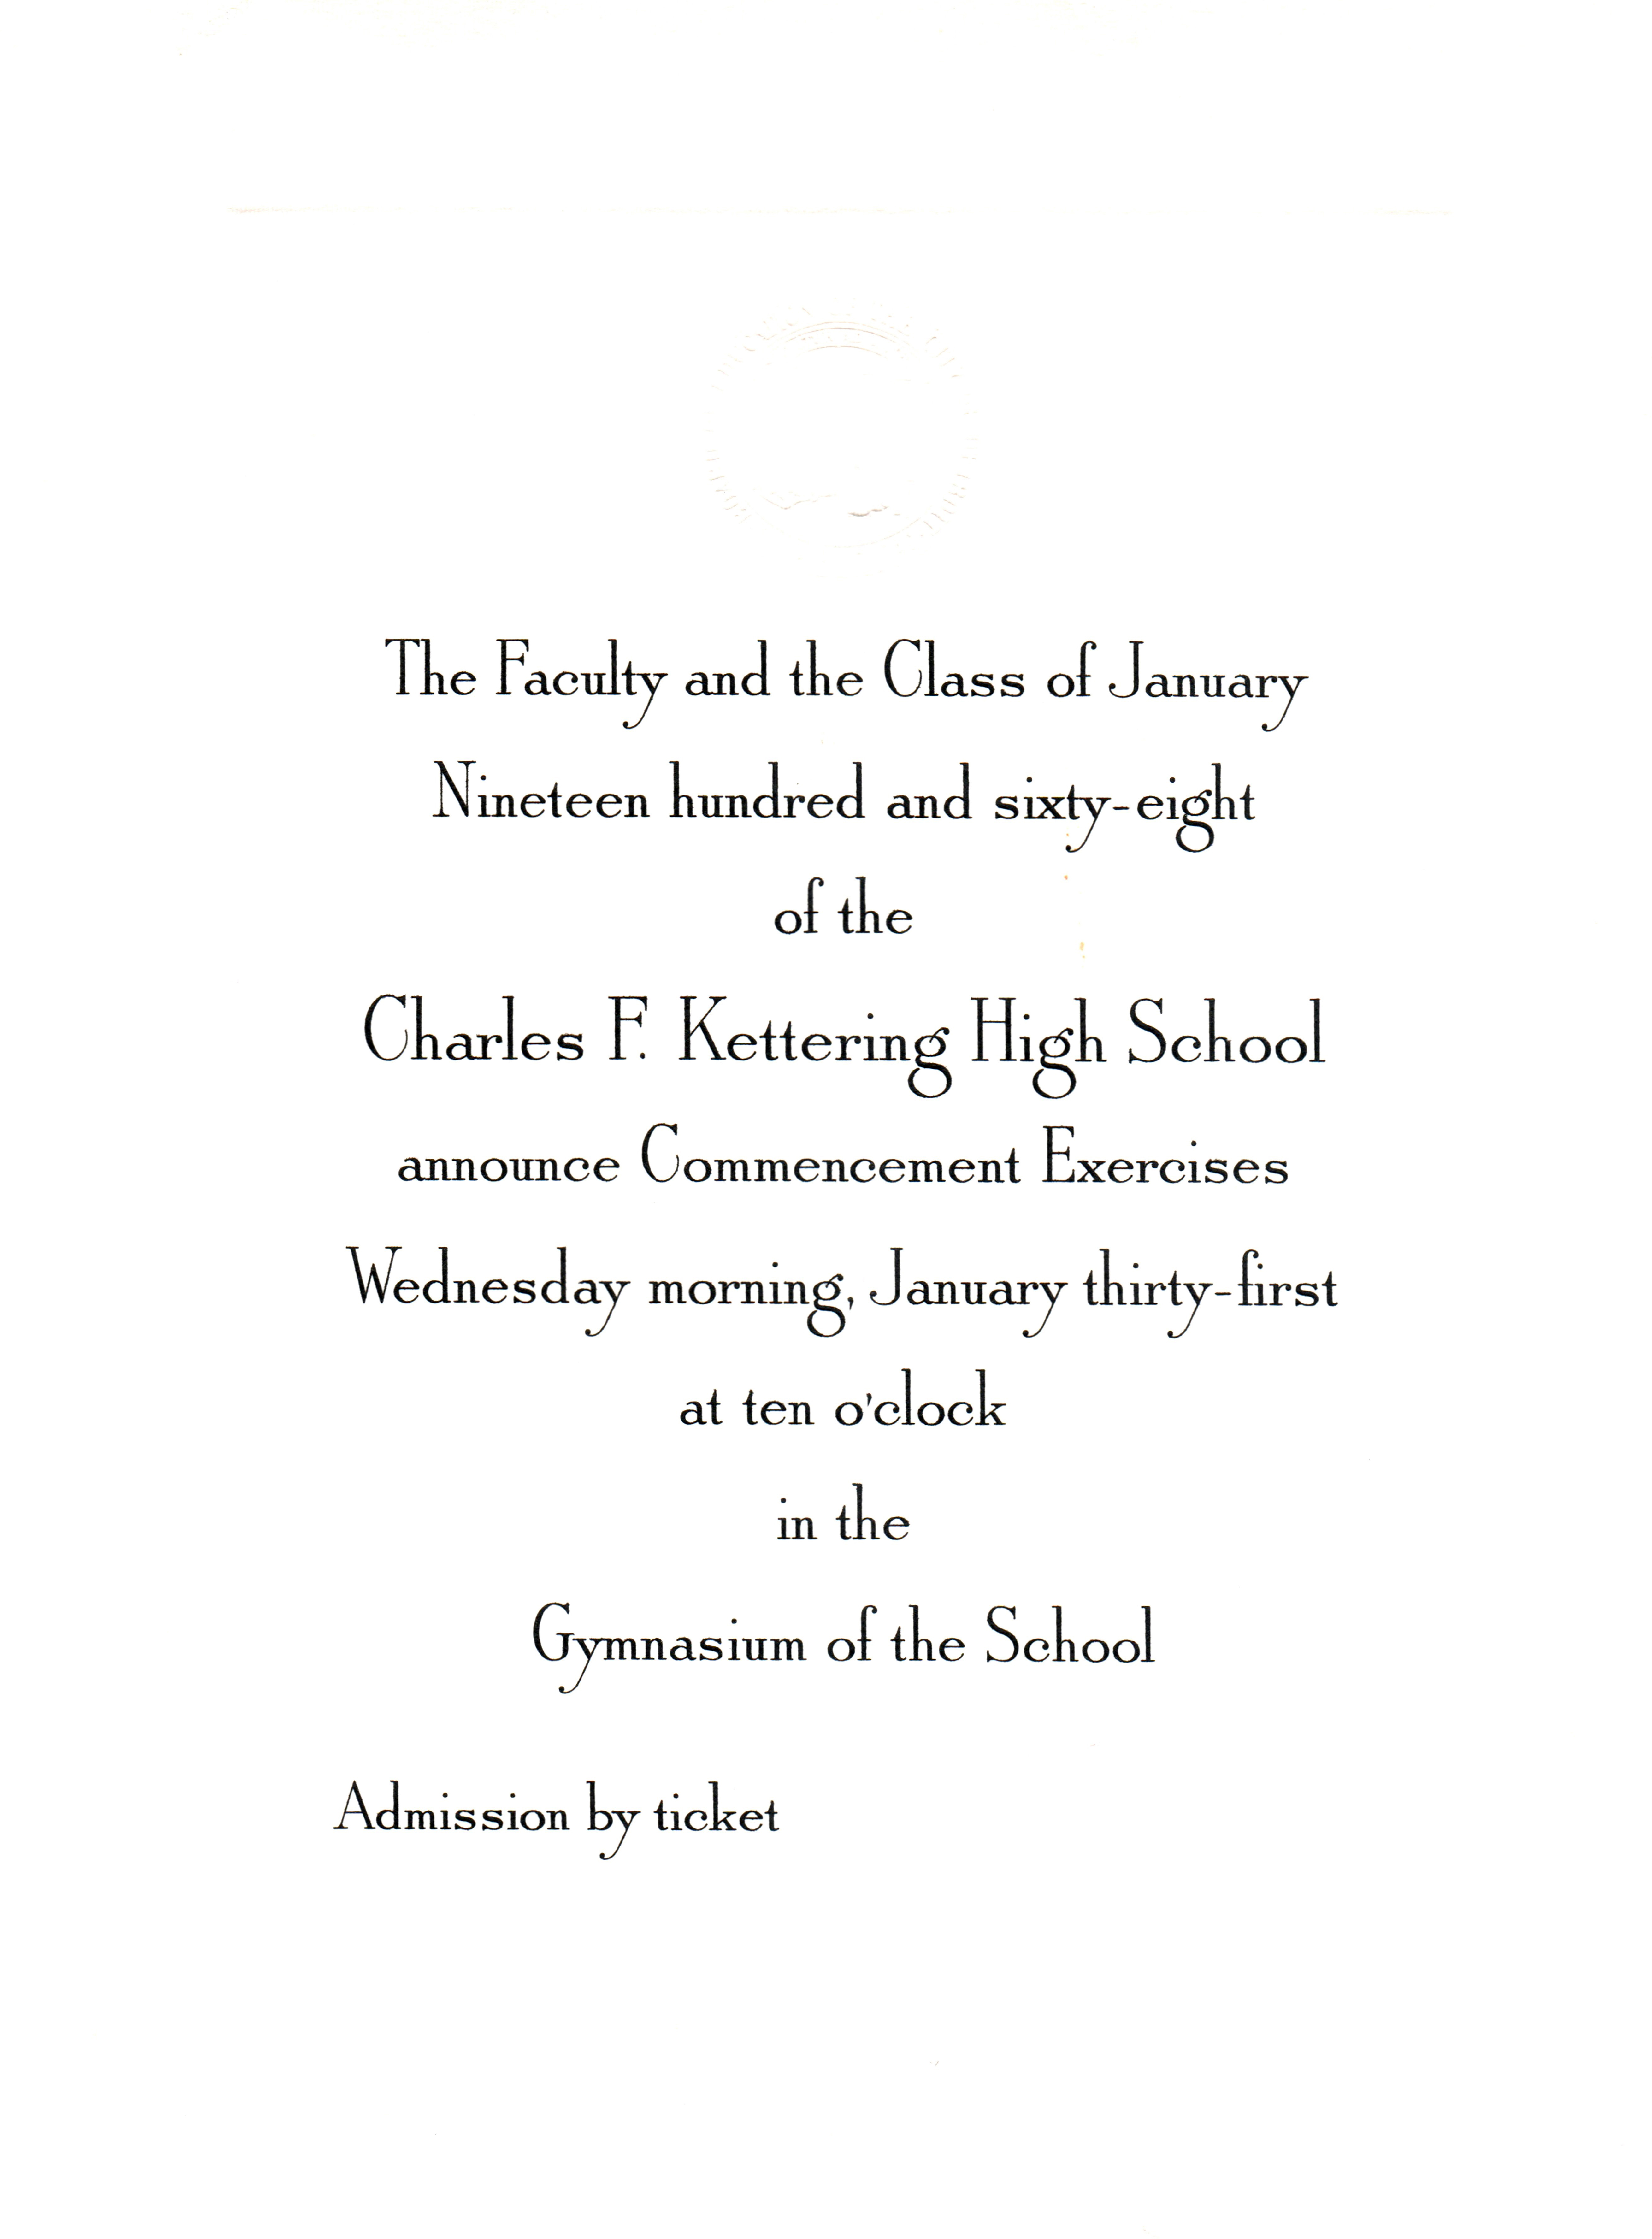 The Faculty and the Class of January
Nineteen hundred and sixty-eight
of the
Charles F. Kettering High School
announce Commencement Exercises
Wednesday morning, January thirty-first
at ten o'clock
in the
Gymnasium of the School
Admission by ticket